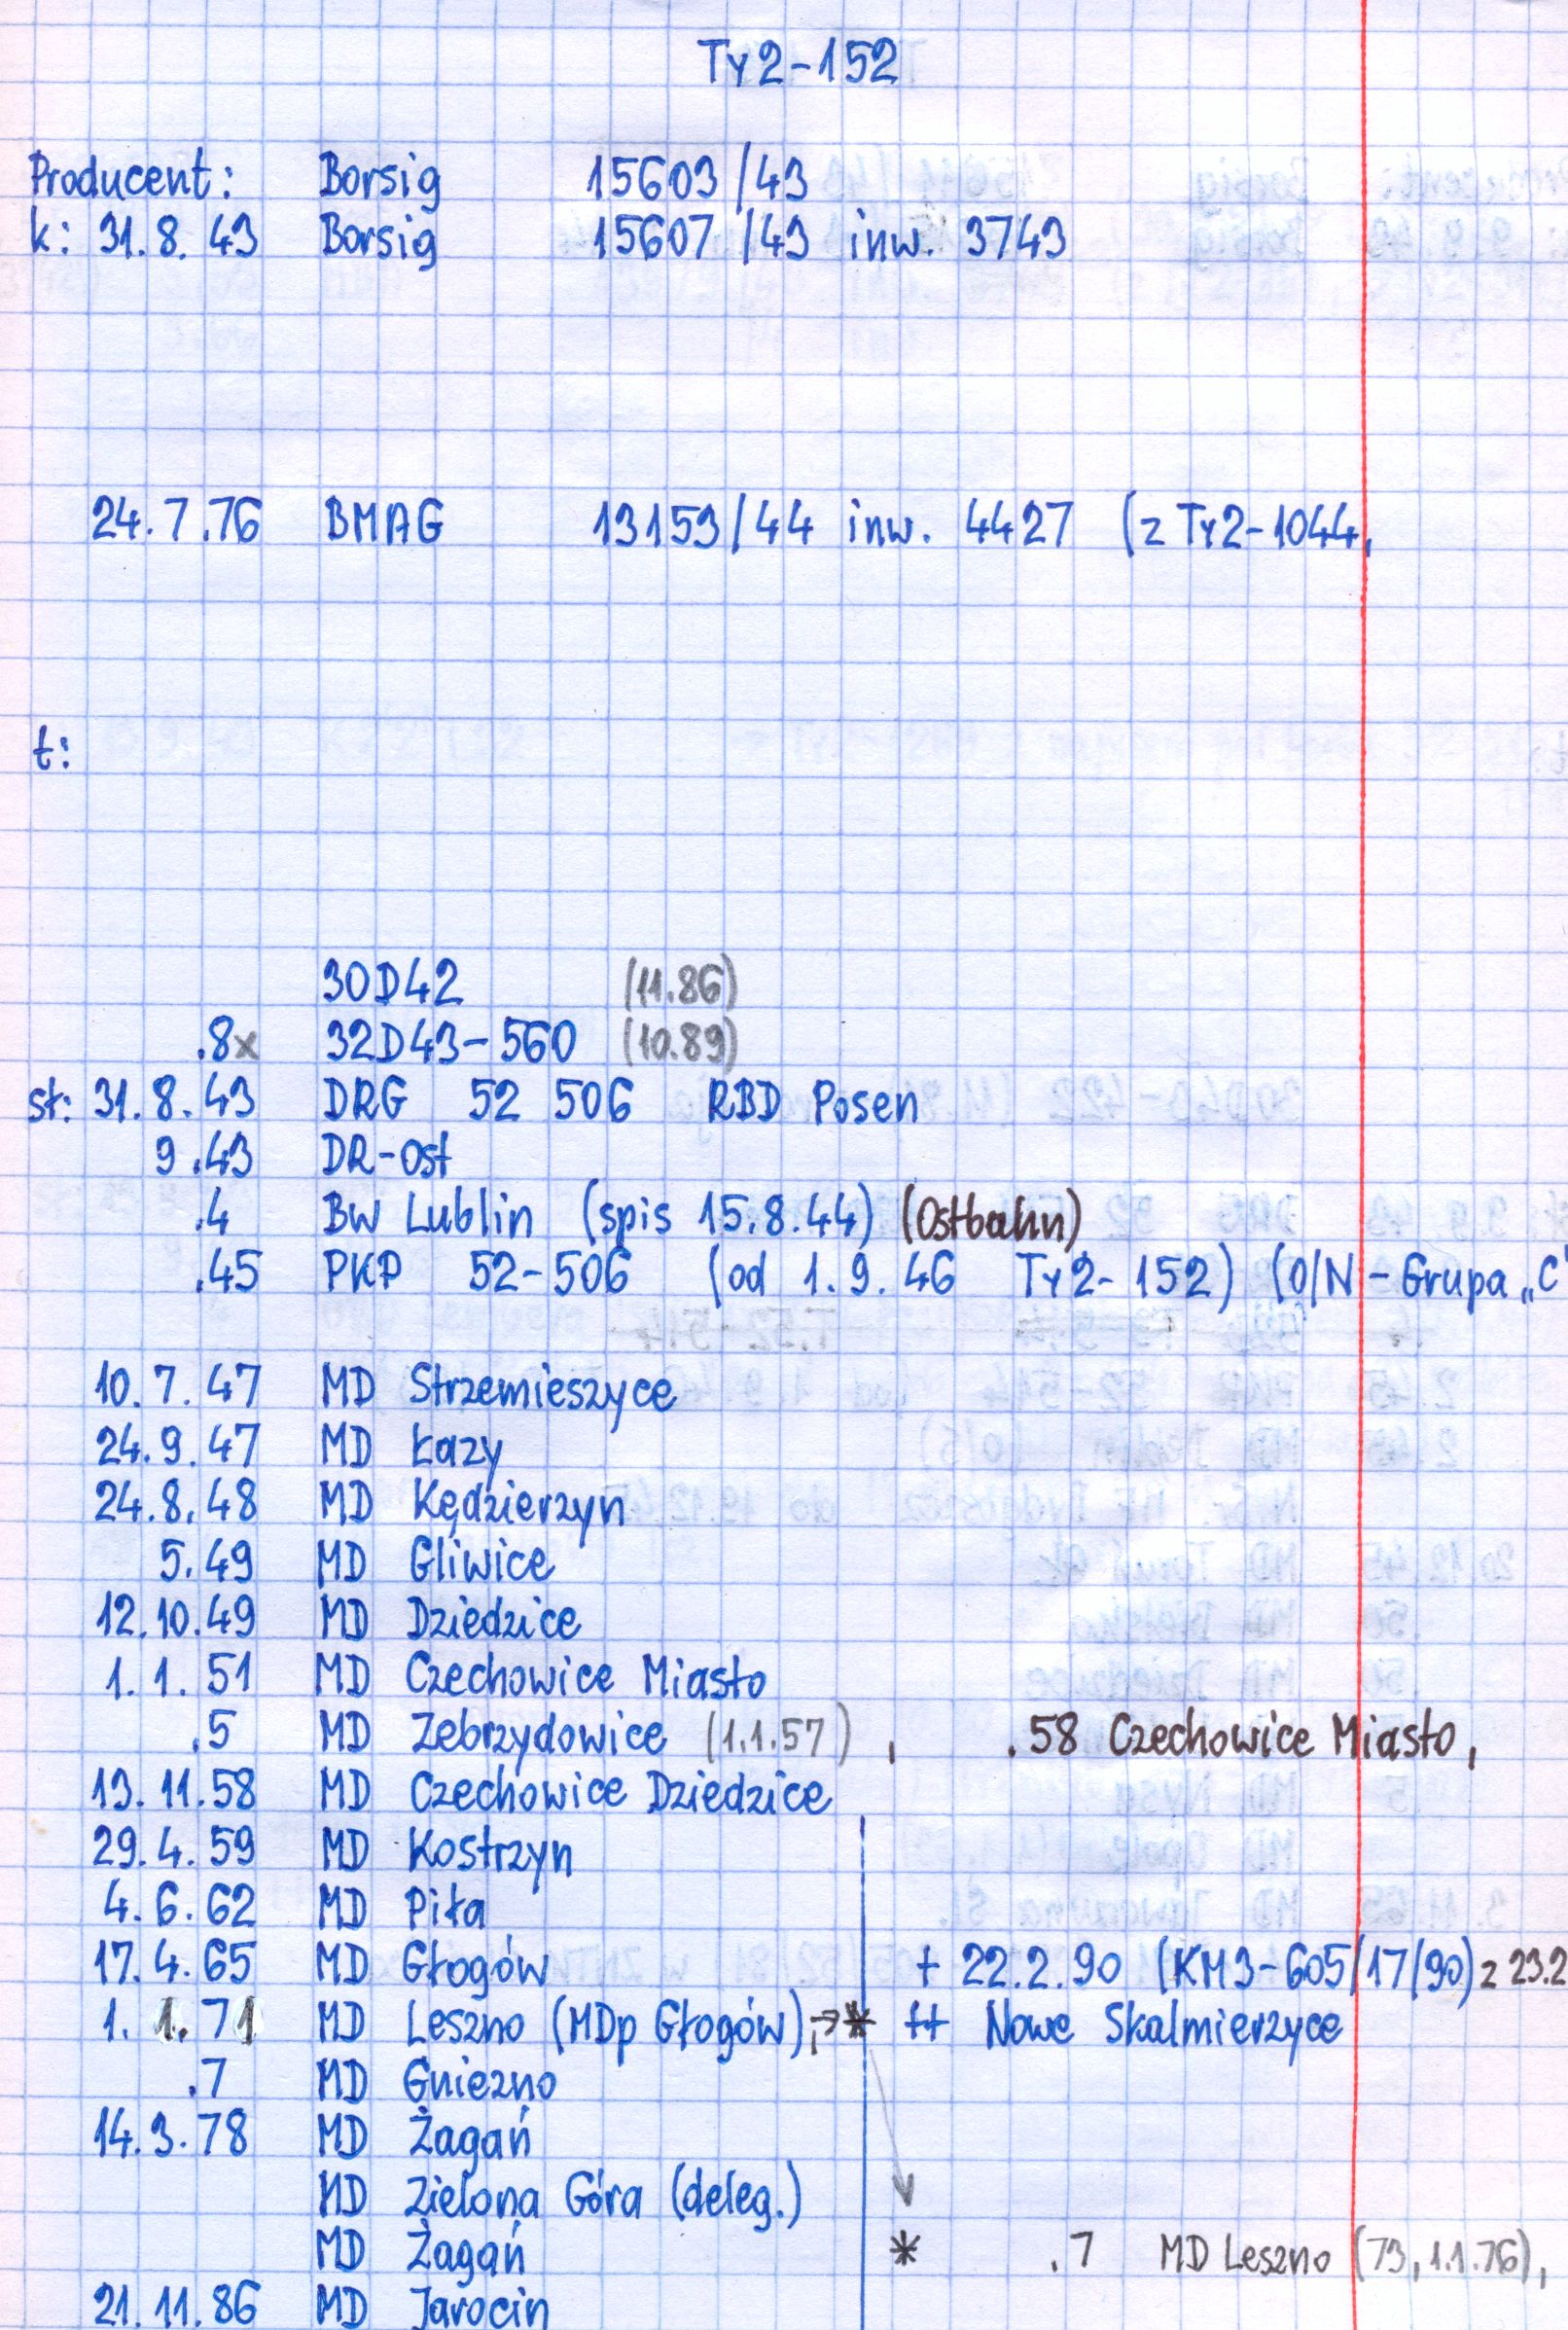 Ty2-152
Producent: Borsig 15603/43
k: 31.8.43 Borsig 15607/43 inw. 3743
24.7.76 BMAG 13153/44 inw. 4427 (z Ty2-1044,
t:
30D42 (11.86)
.8x 32D43-560 (10.89)
st: 31.8.43 DRG 52 506 RBD Posen
9.43 DR-Ost
.4 Bw Lublin (spis 15.8.44) (Ostbahn)
.45 PKP 52-506 (od 1.9.46 Ty2-152) (O/N - Grupa „C"
10.7.47 MD Strzemieszyce
24.9.47 MD Łazy
24.8.48 MD Kędzierzyn
5.49 MD Gliwice
12.10.49 MD Dziedzice
1.1.51 MD Czechowice Miasto
.5 MD Zebrzydowice (1.1.57), .58 Czechowice Miasto,
13.11.58 MD Czechowice Dziedzice
29.4.59 MD Kostrzyn
4.6.62 MD Piła
17.4.65 MD Głogów + 22.2.90 (KM3-605/17/90) z 23.2
1.1.71 MD Leszno (MDp Głogów), → * ++ Nowe Skalmierzyce
.7 MD Gniezno
14.3.78 MD Żagań
MD Zielona Góra (deleg.)
MD Żagań * .7 MD Leszno (73, 1.1.76),
21.11.86 MD Jarocin